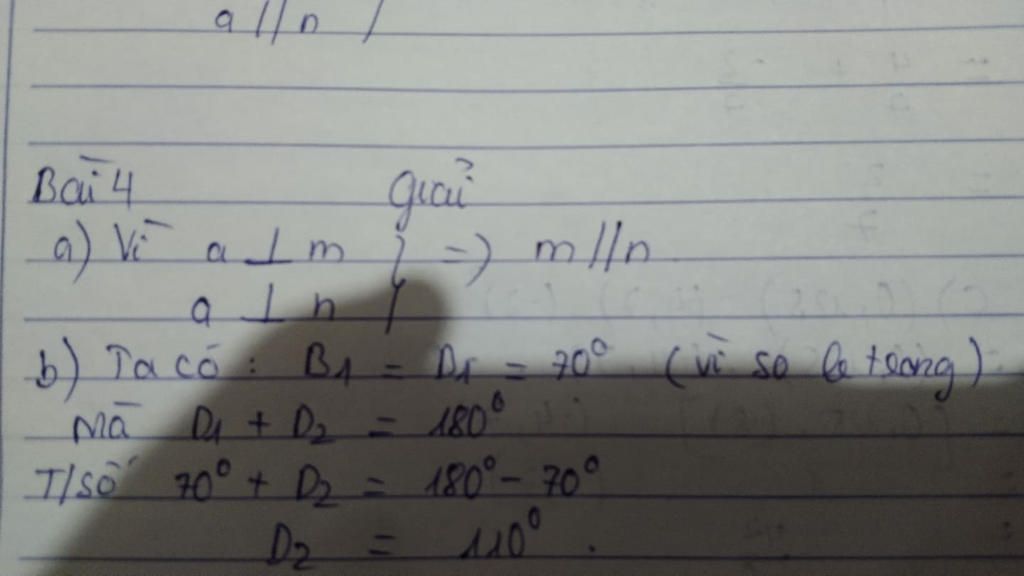 a // n }
Bài 4 Giải
a) Vì a ⊥ m } => m // n
a ⊥ n }
b) Ta có : B1 = D1 = 70° (vì so le trong)
Mà D1 + D2 = 180°
T/số 70° + D2 = 180° - 70°
D2 = 110° .